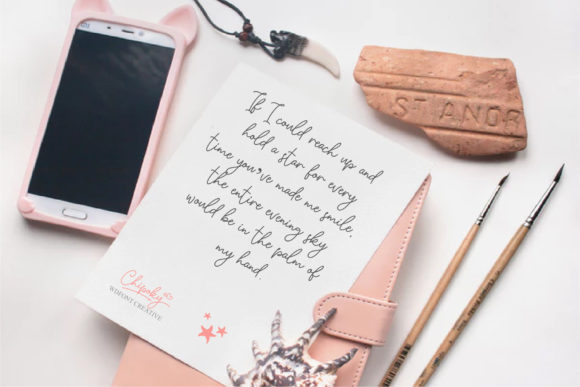 mi
ST ANDR
If I could reach up and
hold a star for every
time you've made me smile,
the entire evening sky
would be in the palm of
my hand.
Chipoky
WDFONT CREATIVE